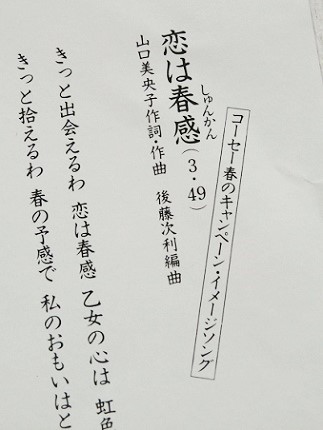 コーセー春のキャンペーン・イメージソング
恋は春感(3・49)
しゅんかん
山口美央子作詞・作曲 後藤次利編曲
きっと出会えるわ 恋は春感 乙女の心は 虹色
きっと拾えるわ 春の予感で 私のおもいはと